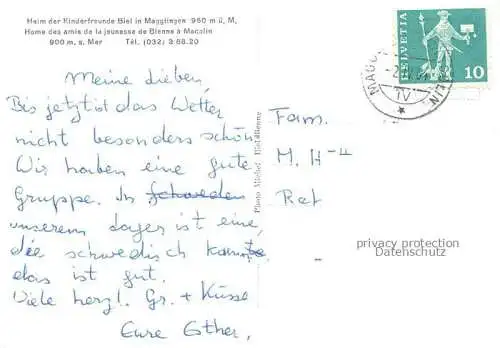 Heim der Kinderfreunde Biel in Magglingen 950 m ü. M.
Home des amis de la jeunesse de Bienne à Macolin
900 m. s. Mer Tél. (032) 3.68.20
Meine dieben,
Bis jetzt ist das Wetter
nicht besonders schön
Wir haben eine gute
Gruppe. In Schweden
unserem dager ist eine,
die schwedisch kannte
das ist gut.
Viele herzl. Gr. + Küsse
Eure Esther,
Photo Michel Biel/Bienne
HELVETIA
10
IV
Fam.
M. H-
Rat
privacy protection
Datenschutz